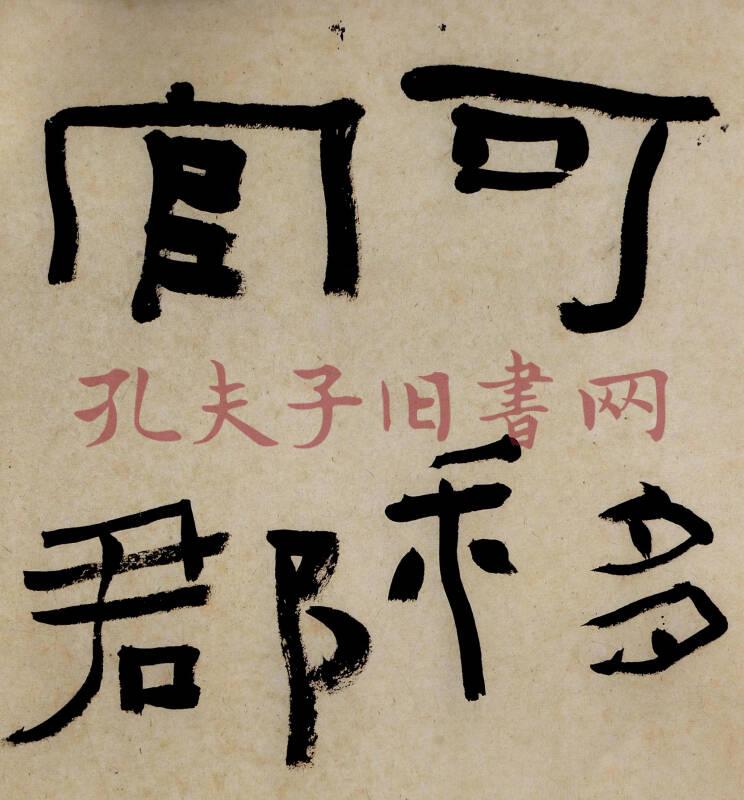 可移
官郡
孔夫子旧書网